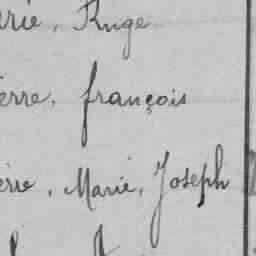 erie, Ruge
erre, françois
erie, Marie, Joseph